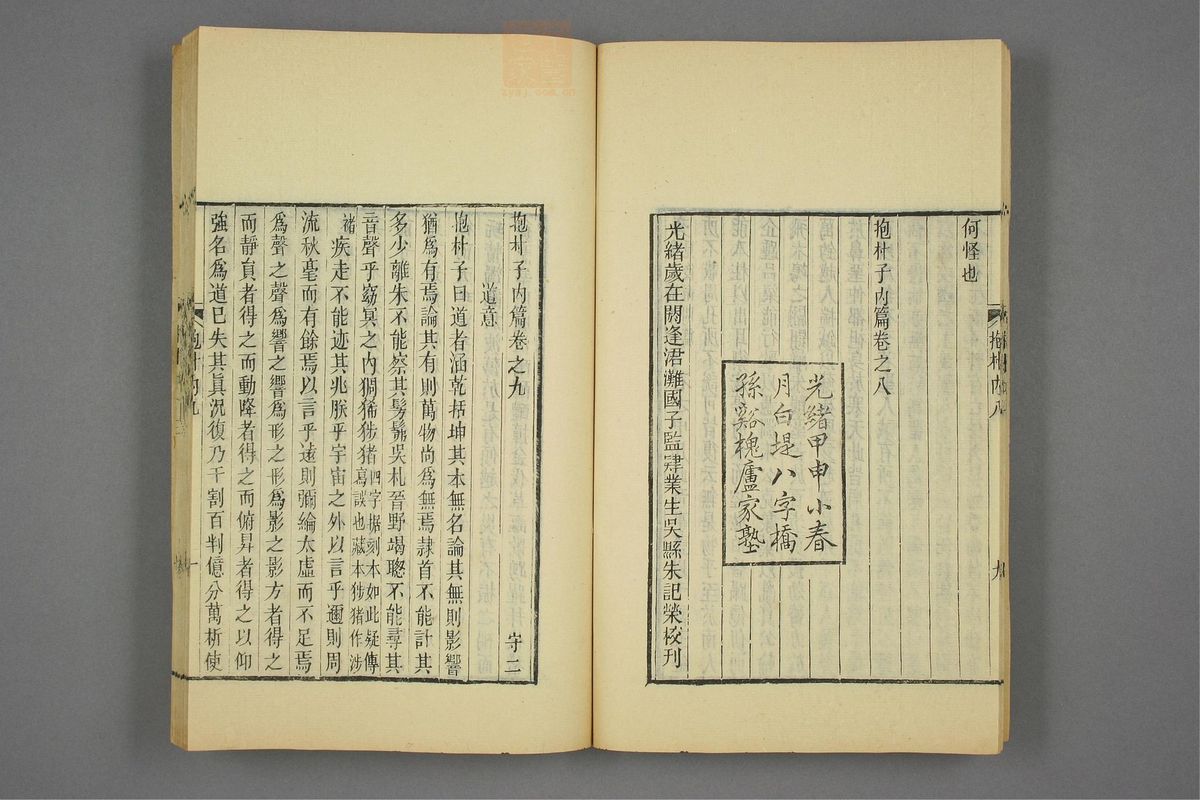 何怪也
抱朴子內篇卷之八
光緒甲申小春
月白堤八字橋
孫谿槐廬家塾
光緒歲在閼逢涒灘國子監肄業生吳縣朱記榮校刊
抱朴內八
九
抱朴子內篇卷之九
守二
道意
抱朴子曰道者涵乾括坤其本無名論其無則影響
猶爲有焉論其有則萬物尚爲無焉隸首不能計其
多少離朱不能察其髣髴吳札晉野竭聰不能尋其
音聲乎窈冥之內猧狶猚猪四字据刻本如此疑傳
寫誤也藏本猚猪作涉
褚
疾走不能迹其兆朕乎宇宙之外以言乎邇則周
流秋毫而有餘焉以言乎遠則彌綸太虛而不足焉
爲聲之聲爲響之響爲形之形爲影之影方者得之
而靜員者得之而動降者得之而俯昇者得之以仰
強名爲道已失其眞況復乃千割百判億分萬析使
抱朴內九